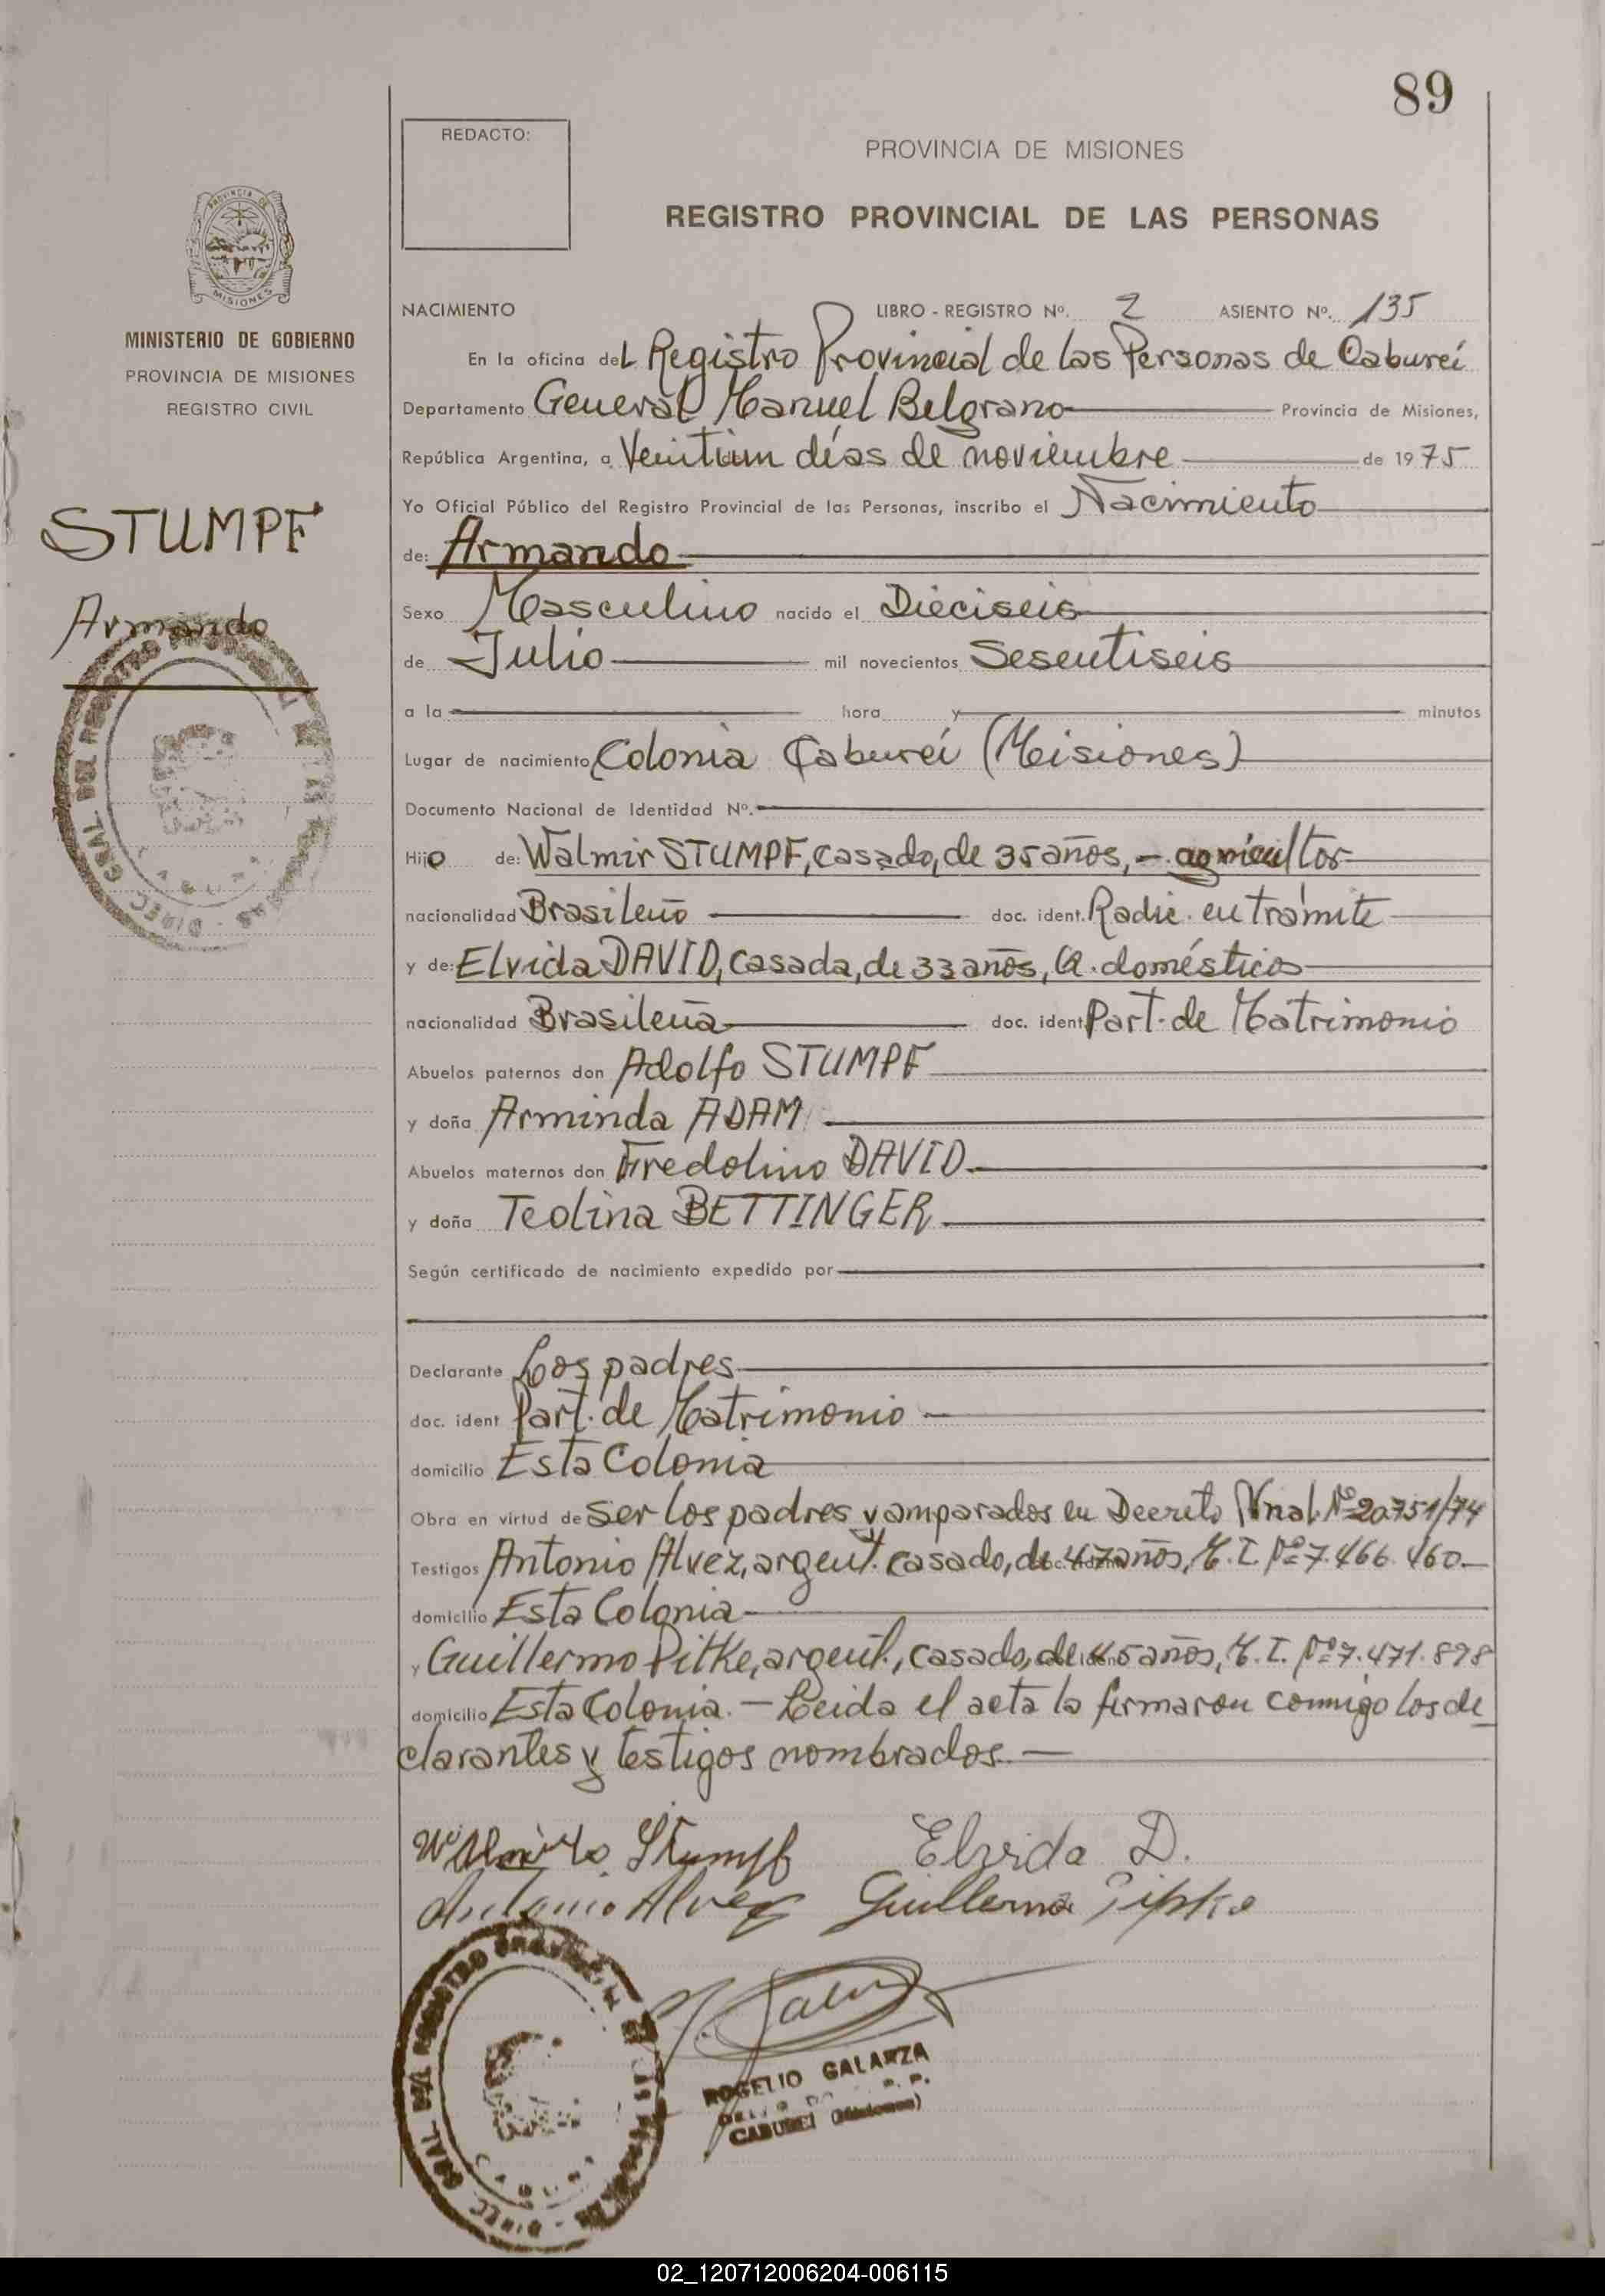 89
REDACTO:
PROVINCIA DE MISIONES
REGISTRO PROVINCIAL DE LAS PERSONAS
PROVINCIA DE
MISIONES
MINISTERIO DE GOBIERNO
PROVINCIA DE MISIONES
REGISTRO CIVIL
STUMPF
Armando
NACIMIENTO LIBRO - REGISTRO Nº. 2 ASIENTO Nº. 135
En la oficina del Registro Provincial de las Personas de Caburei
Departamento General Manuel Belgrano Provincia de Misiones,
República Argentina, a Veintiun días de noviembre de 1975
Yo Oficial Público del Registro Provincial de las Personas, inscribo el Nacimiento
de: Armando
Sexo Masculino nacido el Dieciseis
de Julio mil novecientos Sesentiseis
a la hora y minutos
Lugar de nacimiento Colonia Caburei (Misiones)
Documento Nacional de Identidad Nº.
Hijo de: Walmir STUMPF, casado, de 35 años, - agricultor
nacionalidad Brasileño doc. ident. Radic. en trámite
y de: Elvida DAVID, casada, de 33 años, Q. domésticos
nacionalidad Brasileña doc. ident Part. de Matrimonio
Abuelos paternos don Adolfo STUMPF
y doña Arminda ADAM
Abuelos maternos don Fredolino DAVID
y doña Teolina BETTINGER
Según certificado de nacimiento expedido por
Declarante Los padres
doc. ident Part. de Matrimonio
domicilio Esta Colonia
Obra en virtud de Ser los padres y amparados en Decreto Nnal. Nº 20751/74
Testigos Antonio Alvez, argent. casado, de 47 años, M. I. Nº 7.466.460
domicilio Esta Colonia
y Guillermo Pitke, argent., casado, de 45 años, M. I. Nº 7.471.898
domicilio Esta Colonia. - Leida el acta la firmaron conmigo los de
clarantes y testigos nombrados. -
Stumpf Elvida D.
Antonio Alvez Guillermo Pipke
ROGELIO GALARZA
CABUREI (Misiones)
02_120712006204-006115